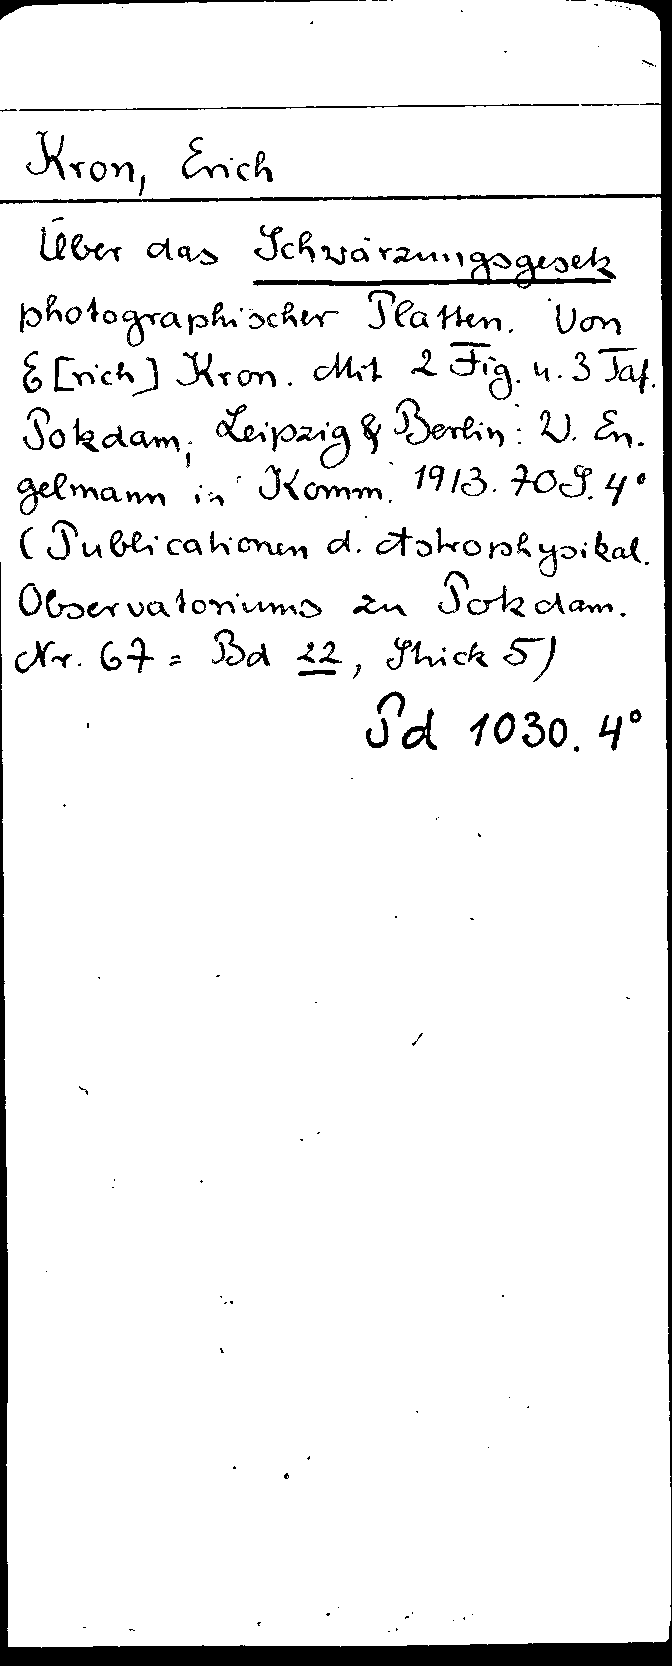 Kron, Erich
Über das Schwärzungsgesetz
photographischer Platten. Von
E[rich] Kron. Mit 2 Fig. u. 3 Taf.
Potsdam; Leipzig & Berlin: W. En-
gelmann in Komm. 1913. 70 S. 4°
(Publicationen d. Astrophysikal.
Observatoriums zu Potsdam.
Nr. 67 = Bd 22, Stück 5)
Pd 1030. 4°